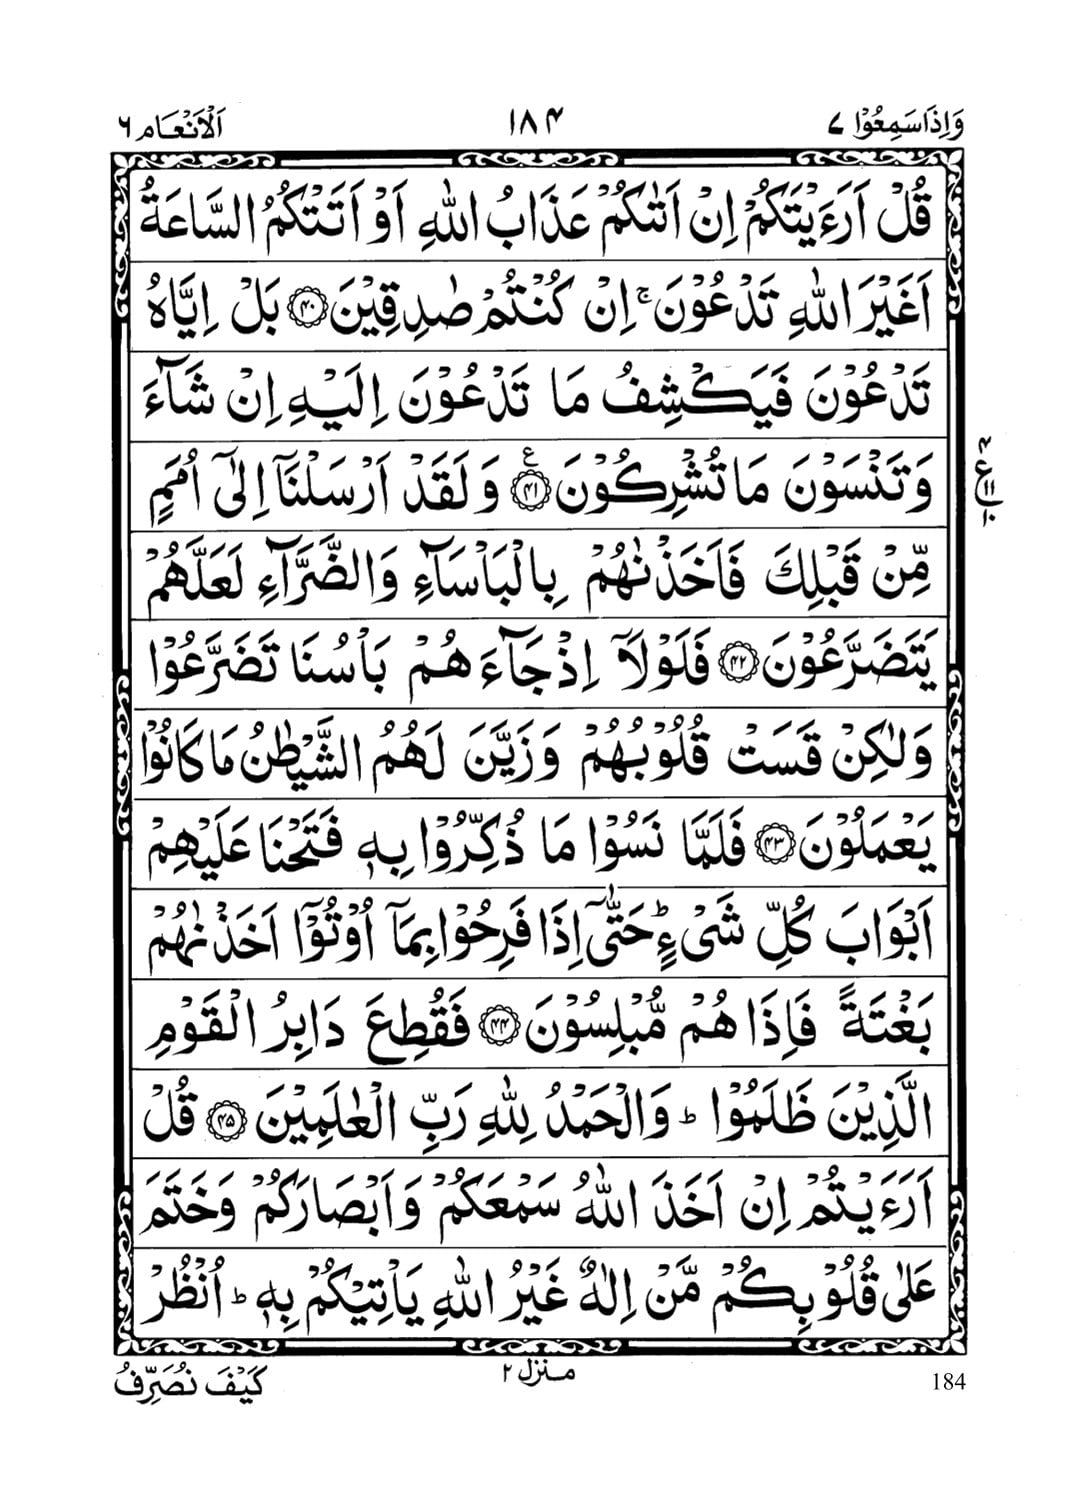 وَاِذَاسَمِعُوۡا ٧
١٨۴
اَلۡاَنۡعَام ٦
قُلۡ اَرَءَيۡتَكُمۡ اِنۡ اَتٰٮكُمۡ عَذَابُ اللّٰهِ اَوۡ اَتَتۡكُمُ السَّاعَةُ
اَغَيۡرَ اللّٰهِ تَدۡعُوۡنَ‌ ۚ اِنۡ كُنۡتُمۡ صٰدِقِيۡنَ ﴿۴۰﴾ بَلۡ اِيَّاهُ
تَدۡعُوۡنَ فَيَكۡشِفُ مَا تَدۡعُوۡنَ اِلَيۡهِ اِنۡ شَآءَ
وَتَنۡسَوۡنَ مَا تُشۡرِكُوۡنَ ﴿۴۱﴾ ع وَلَقَدۡ اَرۡسَلۡنَاۤ اِلٰٓى اُمَمٍ
مِّنۡ قَبۡلِكَ فَاَخَذۡنٰهُمۡ بِالۡبَاۡسَآءِ وَالضَّرَّآءِ لَعَلَّهُمۡ
يَتَضَرَّعُوۡنَ ﴿۴۲﴾ فَلَوۡلَاۤ اِذۡ جَآءَهُمۡ بَاۡسُنَا تَضَرَّعُوۡا
وَلٰكِنۡ قَسَتۡ قُلُوۡبُهُمۡ وَزَيَّنَ لَهُمُ الشَّيۡطٰنُ مَا كَانُوۡا
يَعۡمَلُوۡنَ ﴿۴۳﴾ فَلَمَّا نَسُوۡا مَا ذُكِّرُوۡا بِهٖ فَتَحۡنَا عَلَيۡهِمۡ
اَبۡوَابَ كُلِّ شَىۡءٍ ؕ حَتّٰٓى اِذَا فَرِحُوۡا بِمَاۤ اُوۡتُوۡۤا اَخَذۡنٰهُمۡ
بَغۡتَةً فَاِذَا هُمۡ مُّبۡلِسُوۡنَ ﴿۴۴﴾ فَقُطِعَ دَابِرُ الۡقَوۡمِ
الَّذِيۡنَ ظَلَمُوۡا‌ ؕ وَالۡحَمۡدُ لِلّٰهِ رَبِّ الۡعٰلَمِيۡنَ ﴿۴۵﴾ قُلۡ
اَرَءَيۡتُمۡ اِنۡ اَخَذَ اللّٰهُ سَمۡعَكُمۡ وَاَبۡصَارَكُمۡ وَخَتَمَ
عَلٰى قُلُوۡبِكُمۡ مَّنۡ اِلٰهٌ غَيۡرُ اللّٰهِ يَاۡتِيۡكُمۡ بِهٖ‌ ؕ اُنۡظُرۡ
۴ ع ١١ ١٠
كَيۡفَ نُصَرِّفُ
منزل ٢
184